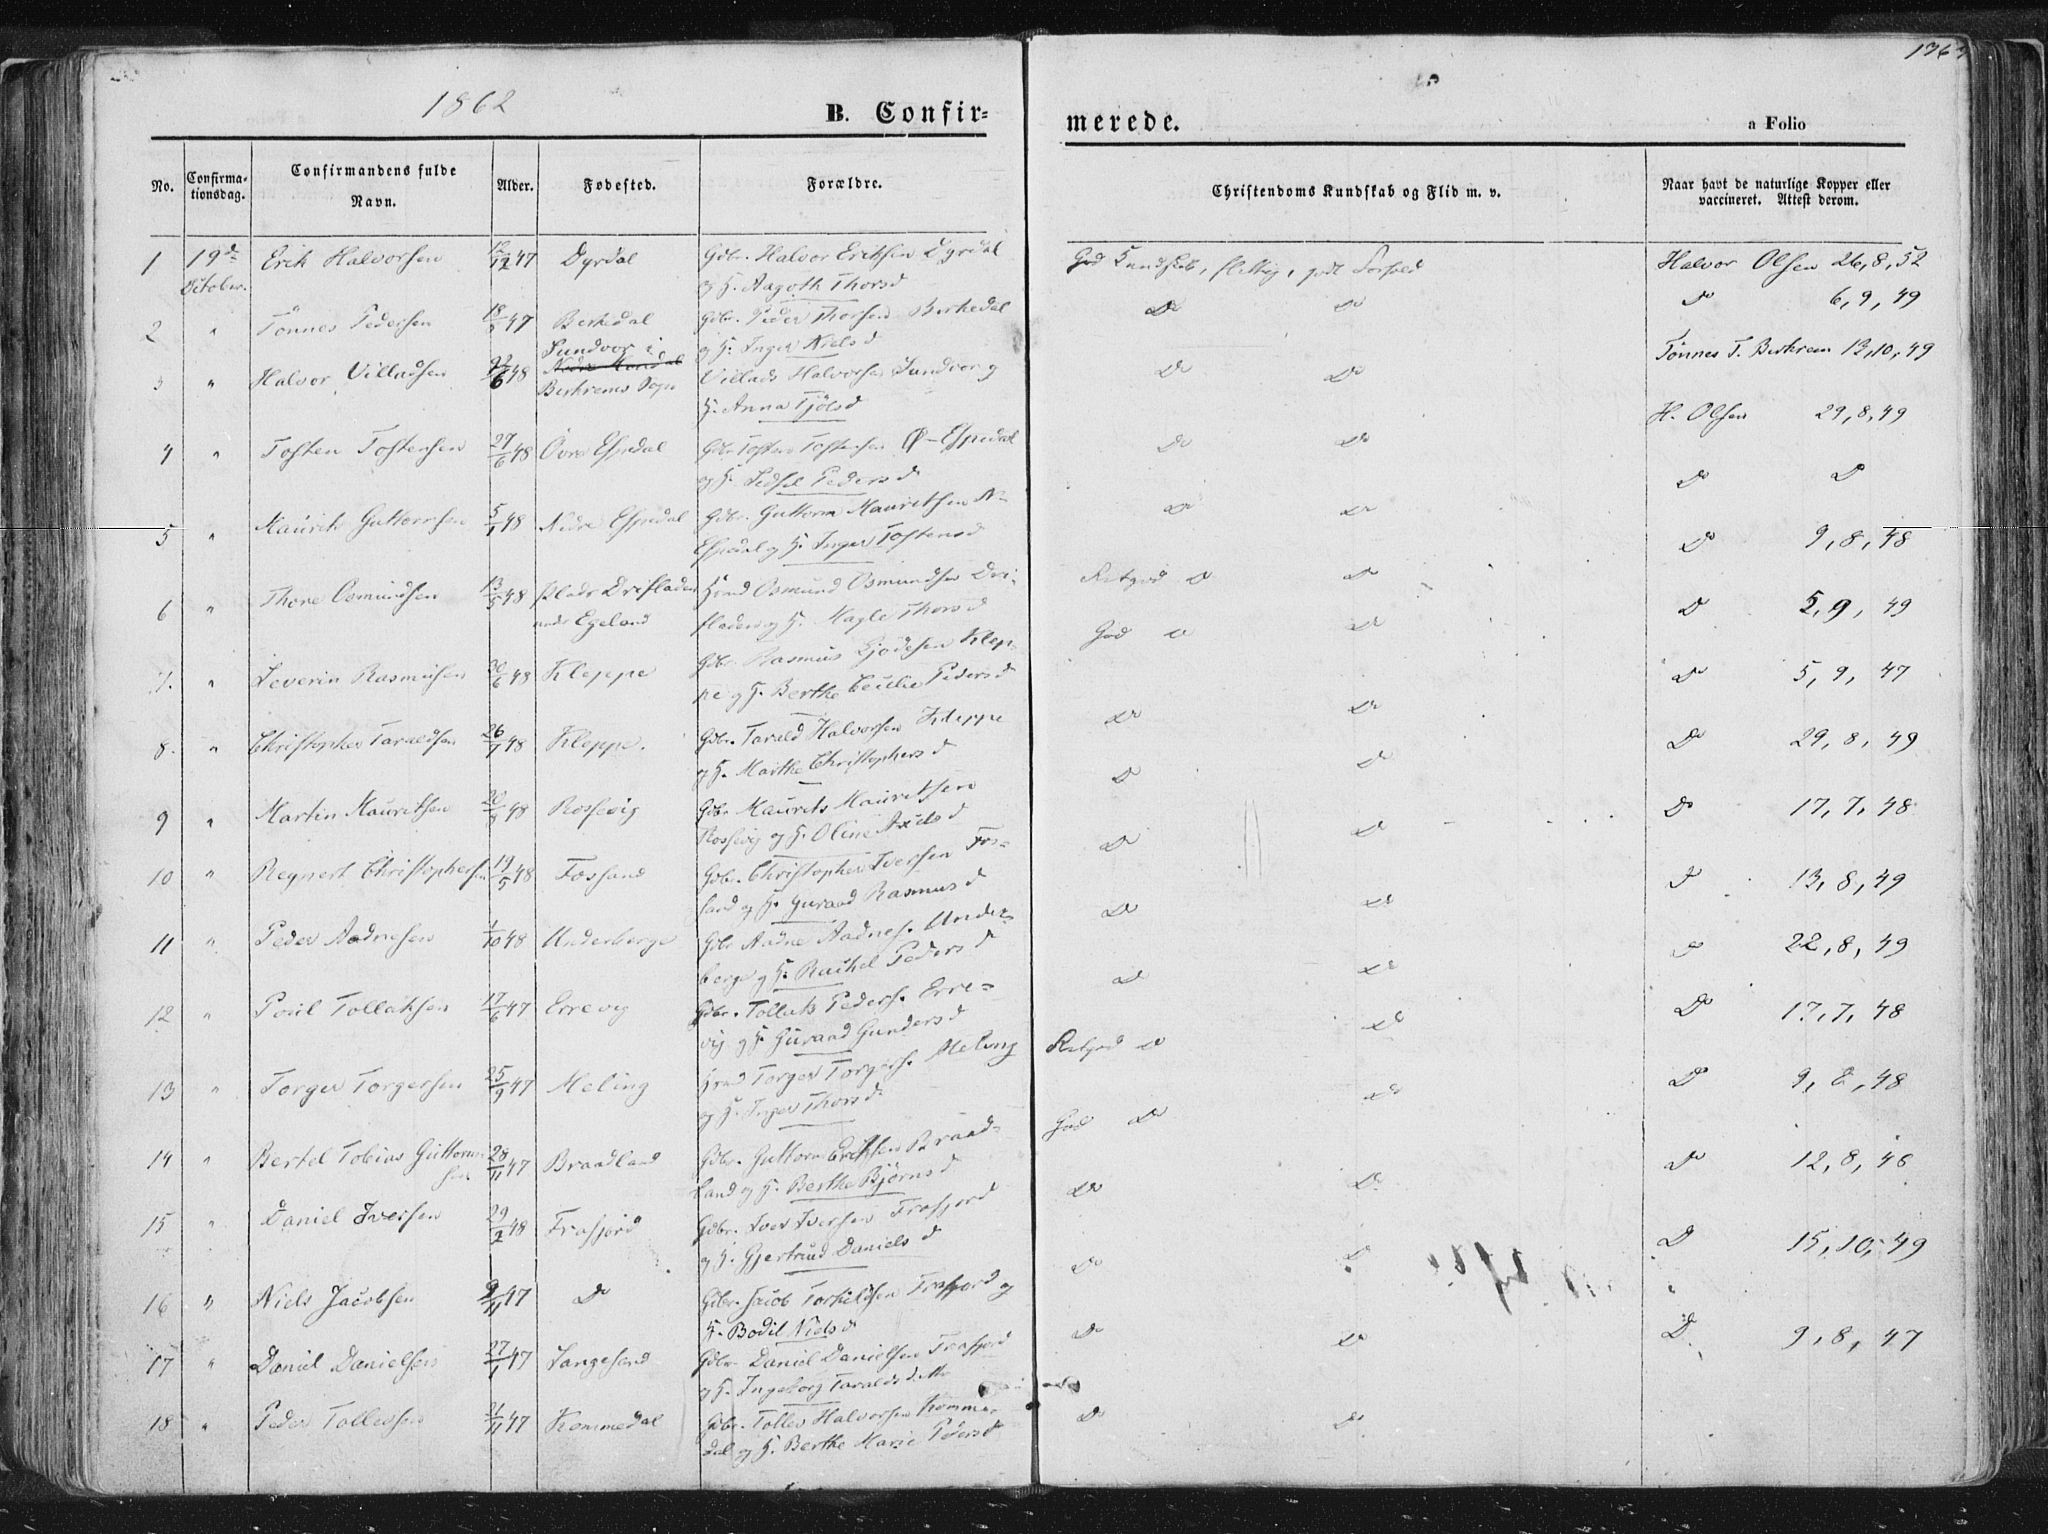 1862
B. Confir=
merede.
a Folio
No.
Confirma-
tionsdag.
Confirmandens fulde
Navn.
Alder.
Fødested.
Forældre.
Christendoms Kundskab og Flid m. v.
Naar havt de naturlige Kopper eller
vaccineret. Attest derom.
1 19de Erik Halvorsen 47 Dyrdal Gdbr. Halvor Eriksen Dyrdal God Kundskab, flittig, godt Forhold Halvor Olsen 26, 8, 52
October. og H. Aagoth Thorsd
2 " Tönnes Pedersen 47 Berkedal Gdbr. Peder Thorsen Berkedal Do Do Do 6, 9, 49
og H. Inger Nielsd
Sundvor i
3 " Halvor Villadsen 48 Villads Halvorsen Sundvor og Do Do Tönnes T. Berkrem 13, 10, 49
Berkrems Sogn
H. Anna Tjölsd
4 " Tosten Tostensen 27/6 48 Övre Espedal Gdbr. Tosten Tostensen Ø-Espedal Do Do H. Olsen 29, 8, 49
og H. Sidsel Pedersd
5 " Maurits Guttormsen 5/1 48 Nedre Espedal Gdbr. Guttorm Mauritsen N- Do Do Do Do
Espedal og H. Inger Tostensd
6 " Thore Osmundsen 13/5 48 Plads Drifladen Hmd Osmund Osmundsen Dri- Retgod Do Do Do 9, 8, 48
under Egeland
fladen og H. Magle Thorsd
7. " Severin Rasmusen 48 Kleppe Gdbr. Rasmus Gjödesen Klep- God Do Do Do 9, 49
pe og H. Berthe Cecilie Pedersd
8. " Christopher Taraldsen 26/1 48 Kleppe. Gdbr. Tarald Halvorsen Kleppe Do Do Do 5, 9, 47
og H. Marthe Christophersd
9 " Martin Mauritsen 48 Rossevig Gdbr. Maurits Mauritsen Do Do Do 29, 8, 49
Rossevig og H. Oline Axelsd
10 " Regnert Christophersen 19/5 48 Fossand Gdbr. Christopher Iversen Fos- Do Do Do 17, 7, 48
sand og H. Guraad Rasmusd
11 " Peder Aadnesen 1/10 48 Underberge Gdbr. Aadne Aadnes. Under- Do Do Do 13, 8, 49
berge og H. Rachel Pedersd
12 " Poul Tollaksen 17/6 47 Errevig Gdbr. Tollak Peders. Erre- Do Do Do 22, 8, 49
vig og H. Guraad Gundersd
13 " Torger Torgersen 25/9 47 Meling Hmd Torger Torgers. Meling Retgod Do Do Do 17, 7, 48
og H. Inger Thorsd
14 " Bertel Tobias Guttorm- 28/11 47 Braadland Gdbr. Guttorm Eriksen Braad- God Do Do Do 9, 8, 48
sen
land og H. Berthe Björnsd
15 " Daniel Iversen 29/2 48 Frafjord Gdbr. Iver Iversen Frafjord Do Do Do 12, 8, 48
og H. Gjertrud Danielsd
16 " Niels Jacobsen 9/11 47 Do Gdbr. Jacob Torkildsen Frafjord og Do Do Do 15, 10, 49
H. Bodil Nielsd
17 " Daniel Danielsen 27/1 47 Sangesand Gdbr. Daniel Danielsen Frafjord Do Do Do 9, 8, 47
og H. Ingeborg Taraldsdatter
18 " Peder Tollevsen 47 Kommedal Gdbr. Tollev Halvorsen Komme- Do Do
dal og H. Berthe Marie Pedersd